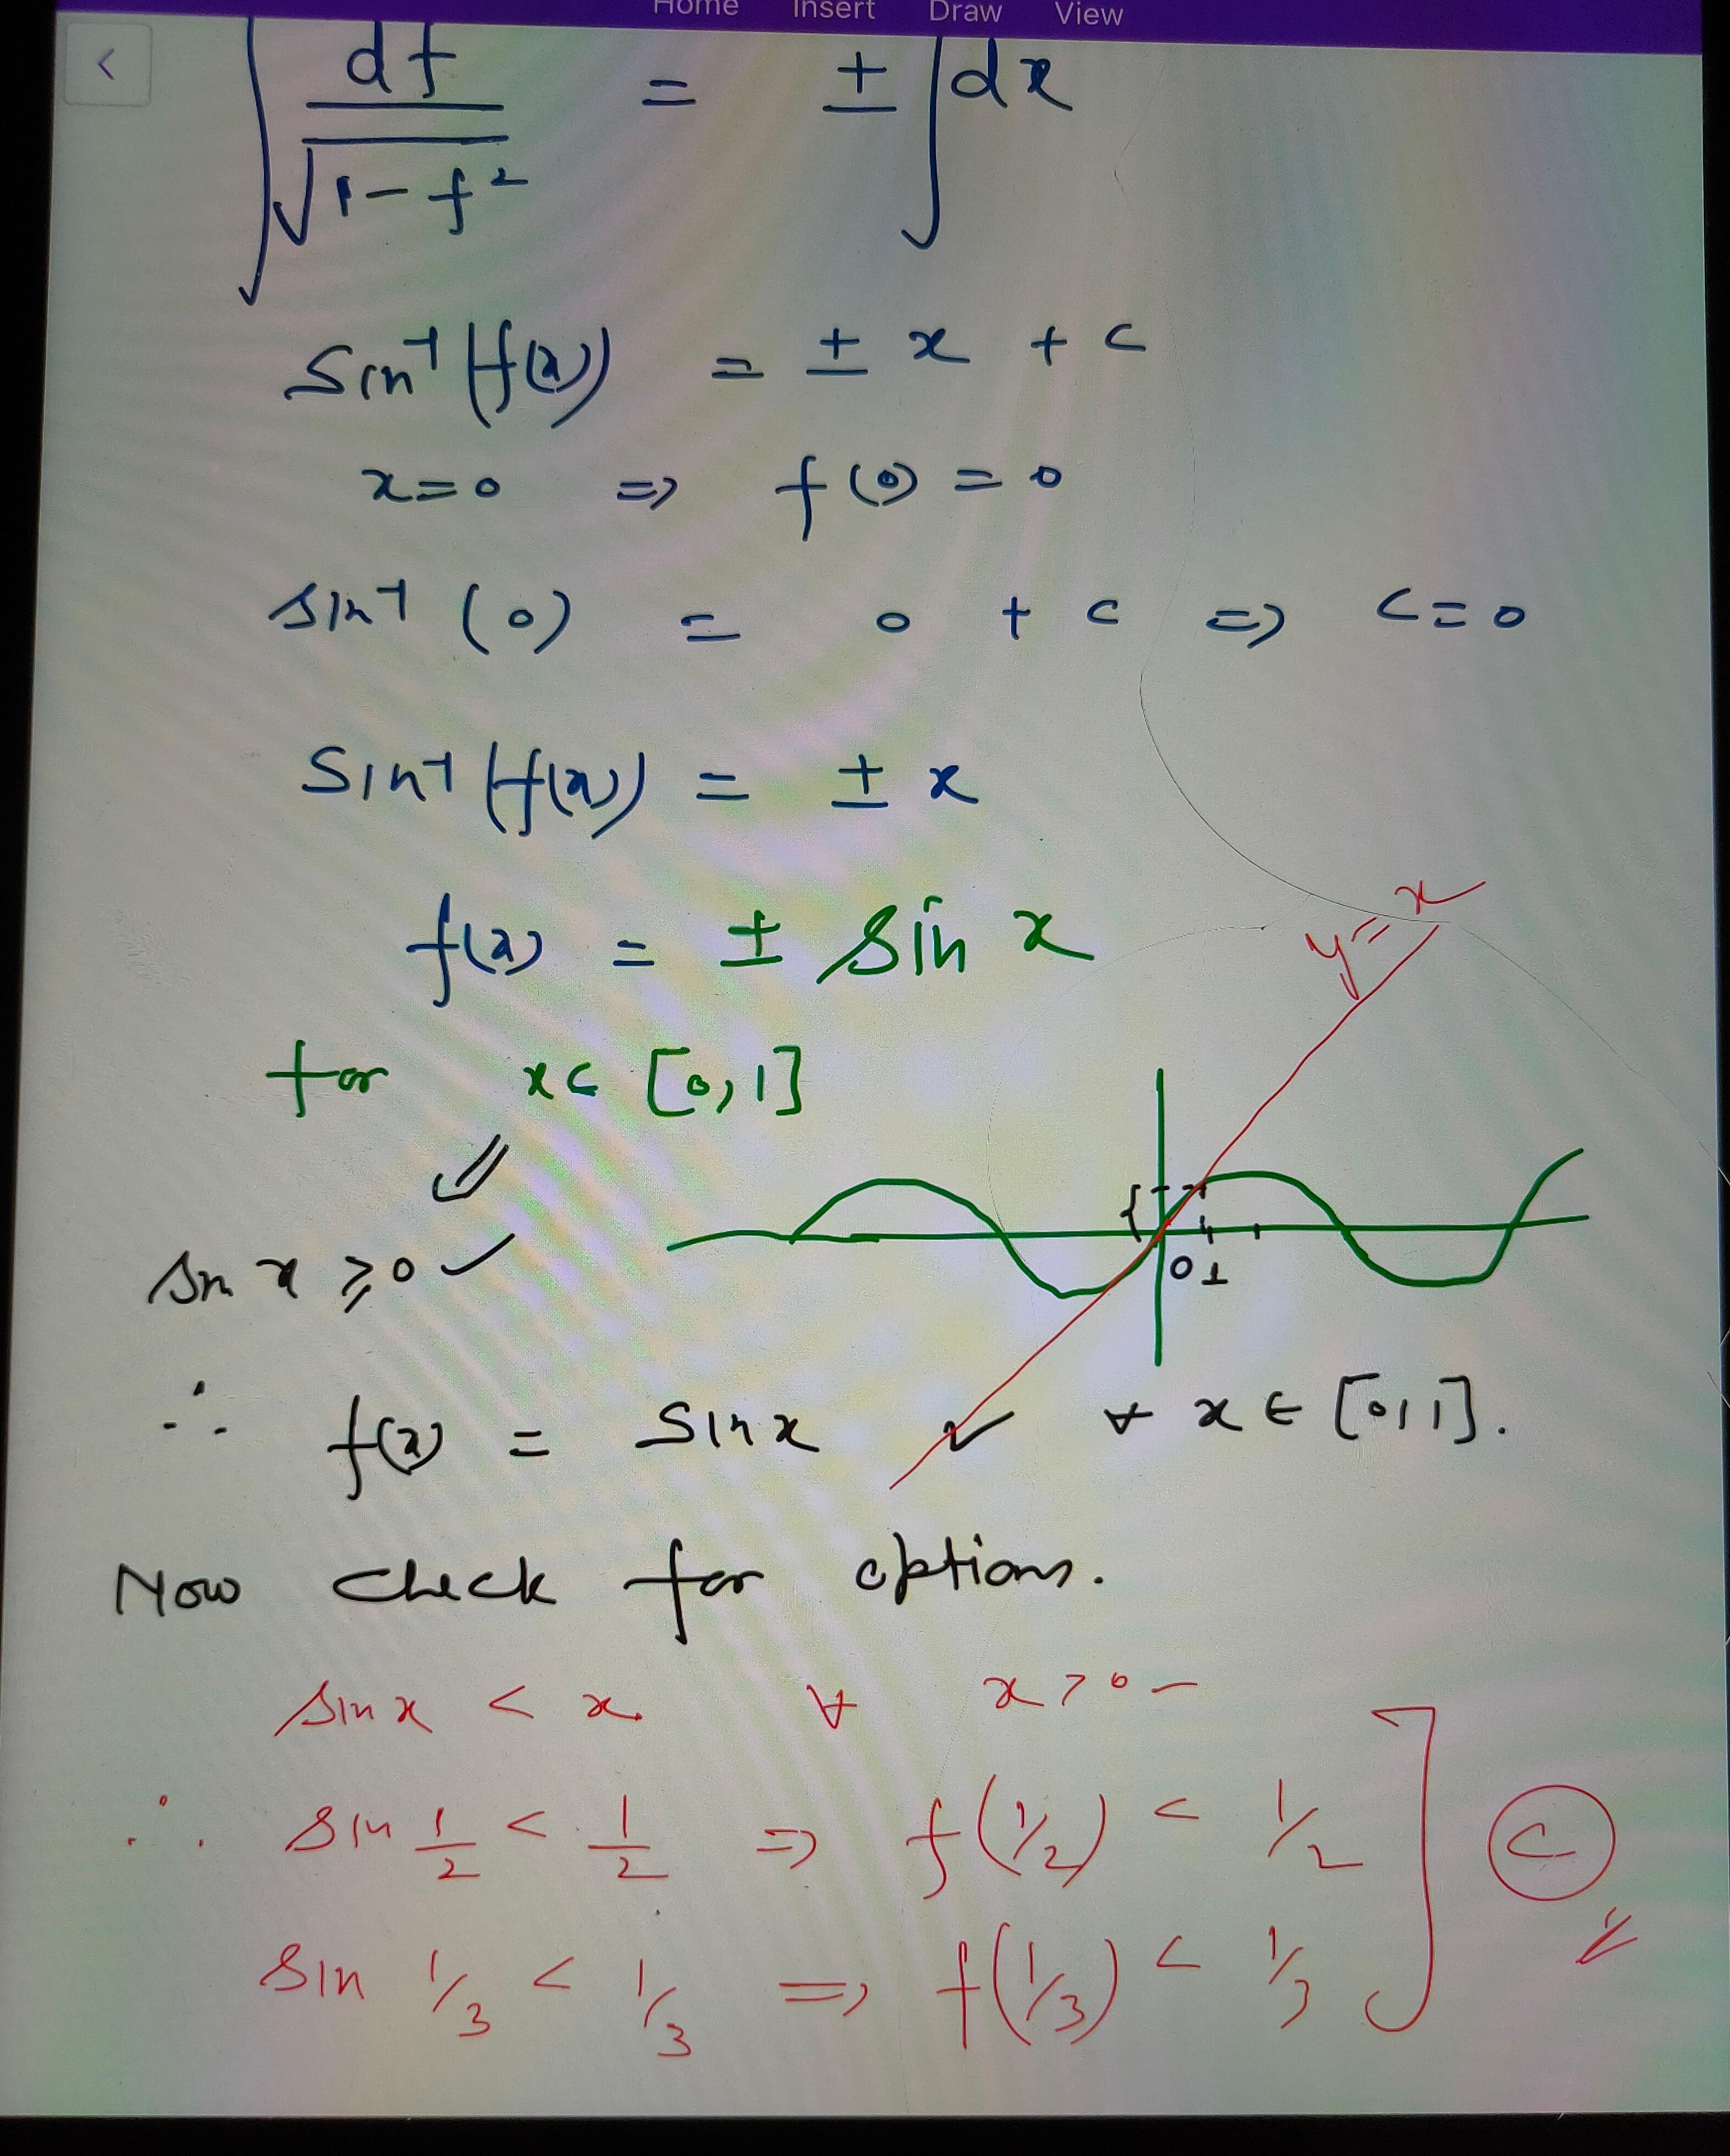 Home Insert Draw View
<
∫ df / √(1 - f²) = ± ∫ dx
Sin⁻¹ (f(x)) = ± x + c
x = 0 => f(0) = 0
sin⁻¹ (0) = 0 + c => c = 0
Sin⁻¹ (f(x)) = ± x
f(x) = ± Sin x
y = x
for x ∈ [0, 1]
sin x ≥ 0 ✓
0 1
∴ f(x) = Sin x ✓ ∀ x ∈ [0, 1].
Now check for options.
Sin x < x ∀ x > 0
∴ Sin 1/2 < 1/2 => f(1/2) < 1/2
C
Sin 1/3 < 1/3 => f(1/3) < 1/3